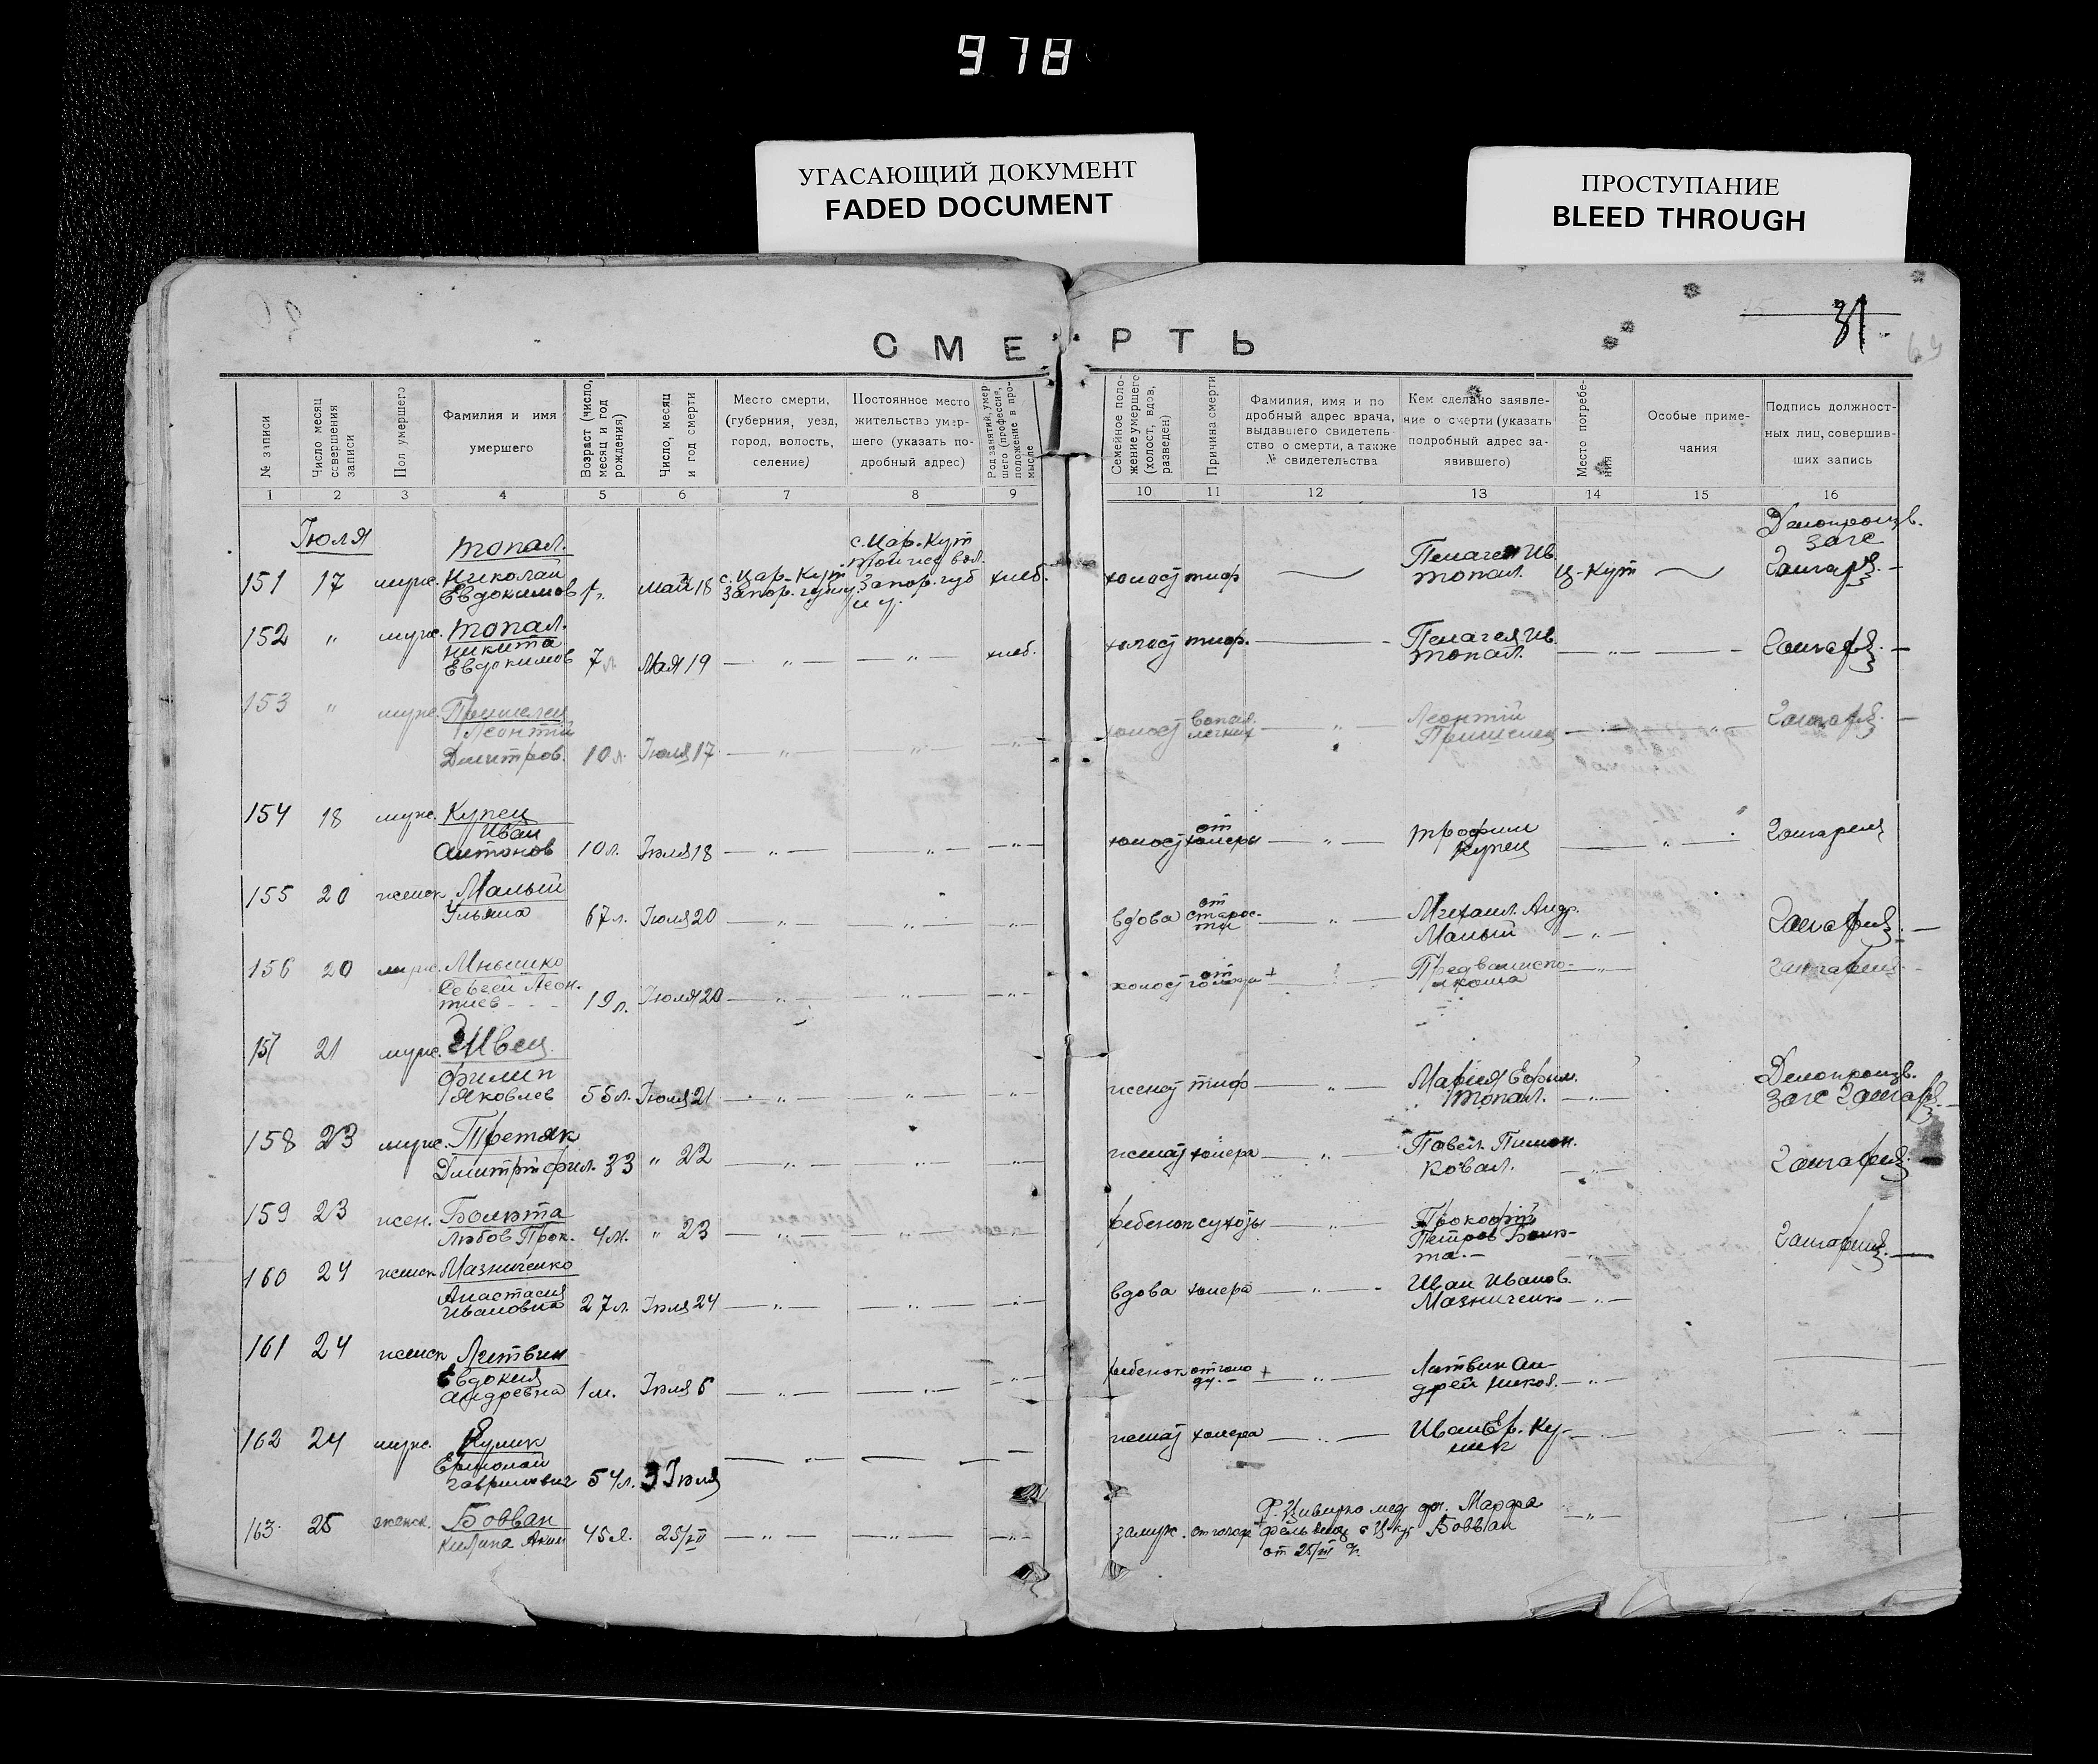 978
УГАСАЮЩИЙ ДОКУМЕНТ
FADED DOCUMENT
ПРОСТУПАНИЕ
BLEED THROUGH
31
СМЕРТЬ
№ записи
Число месяц совершения записи
Пол умершего
Фамилия и имя умершего
Возраст (число, месяц и год рождения)
Число, месяц и год смерти
Место смерти, (губерния, уезд, город, волость, селение)
Постоянное место жительства умершего (указать подробный адрес)
Род занятий, умершего (профессия, положение в промысле
Семейное положение умершего (холост, вдов, разведен)
Причина смерти
Фамилия, имя и подробный адрес врача, выдавшего свидетельство о смерти, а также № свидетельства
Кем сделано заявление о смерти (указать подробный адрес заявившего)
Место погребения
Особые примечания
Подпись должностных лиц, совершивших запись
1 2 3 4 5 6 7 8 9 10 11 12 13 14 15 16
Июля
151 17 муж. Топал. Николай Евдокимов Май 18 с. Цар-Кут Запор. губ. с. Цар. Кут Запор. губ и у. хлеб. холост тиф Пелагея Ив. Топал. Ц-Кут Делопроизв. загс
152 " муж. Топал. Никита Евдокимов 7 л. Мая 19 — " — — " — хлеб. холост тиф. Пелагея Ив. Топал. — " —
153 " муж. Пришелец Леонтий Дмитров. 10 л. Июля 17 — " — " — " — холост воспал. легких — " — Леонтий Пришелец — " —
154 18 муж. Купец Иван Антонов 10 л. Июля 18 — " — " — " — холост от холеры — " — Трофим Купец — " —
155 20 женск. Малый Ульяна 67 л. Июля 20 — " — — " — — " — вдова от старости — " — Михаил. Андр. Малый — " —
156 20 муж. Сергей Леонтиев 19 л. Июля 20 — " — " — " — холост от голода + — " —
157 21 муж. Швец Филип Яковлев 55 л. Июля 21 — " — " — " — женат тиф — " — Мария Ефим. Топал. — " — Делопроизв. загс
158 23 муж. Третяк Дмитрий Фил. 33 " 22 — " — " — " — женат холера — " — Павел. Пимон. Ковал. — " —
159 23 жен. Любов Прок. 4 м. " 23 — " — " — " — ребенок сухоты — " — Прокофий Петров — " —
160 24 женск Мазниченко Анастасия Ивановна 27 л. Июля 24 — " — " — " — вдова холера — " — Иван Иванов. Мазниченко — " —
161 24 женск Литвин Евдокия Андревна 1 м. Июля 5 — " — " — " — ребенок от голоду. + — " — Литвин Андрей Никол. — " —
162 24 муж. Кулик Ермолай Гаврилович 54 л. 3 Июля — " — женат холера — " — Иван Ер. Кулик — " —
163 25 женск. Бовван Килина Аким 45 л. 25/VII — " — — " — — " — замуж. от голода Марфа Бовван от 25/VII — " —